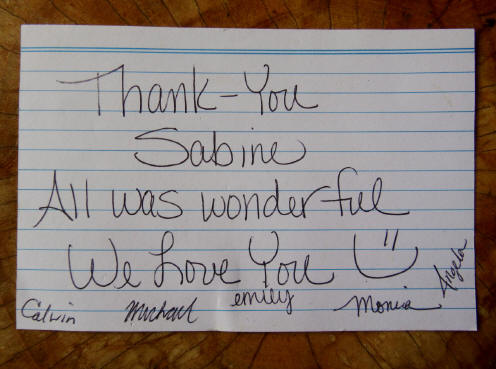 Thank-You
Sabine
All was wonderful
We Love You
Calvin Michael emily Monica Angela